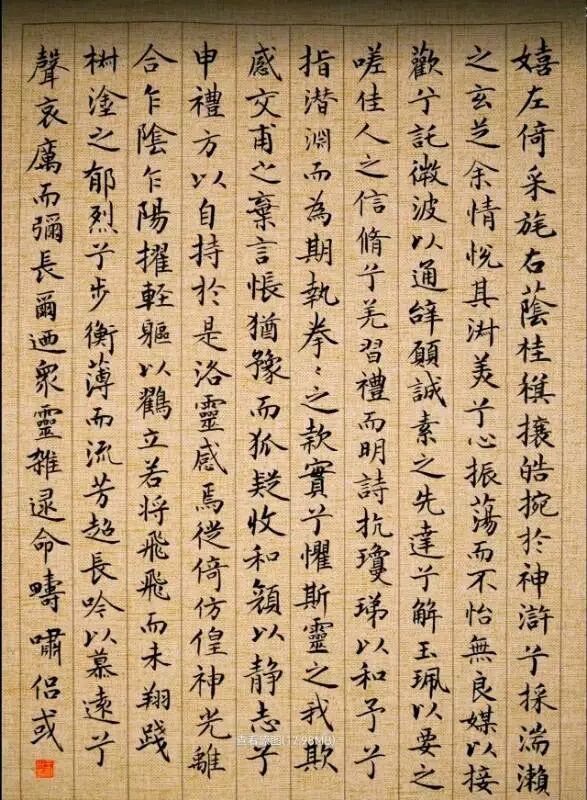 嬉左倚采旄右蔭桂旗攘皓捥於神滸兮採湍瀨
之玄芝余情悅其淑美兮心振蕩而不怡無良媒以接
歡兮託微波以通辭願誠素之先達兮解玉珮以要之
嗟佳人之信脩兮羌習禮而明詩抗瓊珶以和予兮
指潛淵而為期執拳〻之款實兮懼斯靈之我欺
感交甫之棄言悵猶豫而狐疑收和顏以静志兮
申禮方以自持於是洛靈感焉徙倚仿偟神光離
合乍陰乍陽擢軽軀以鸖立若将飛飛而未翔踐
椒塗之郁烈兮步衡薄而流芳超長吟以慕遠兮
聲哀厲而彌長爾迺衆靈雑遝命疇嘯侣或
查看原图(17.98MB)